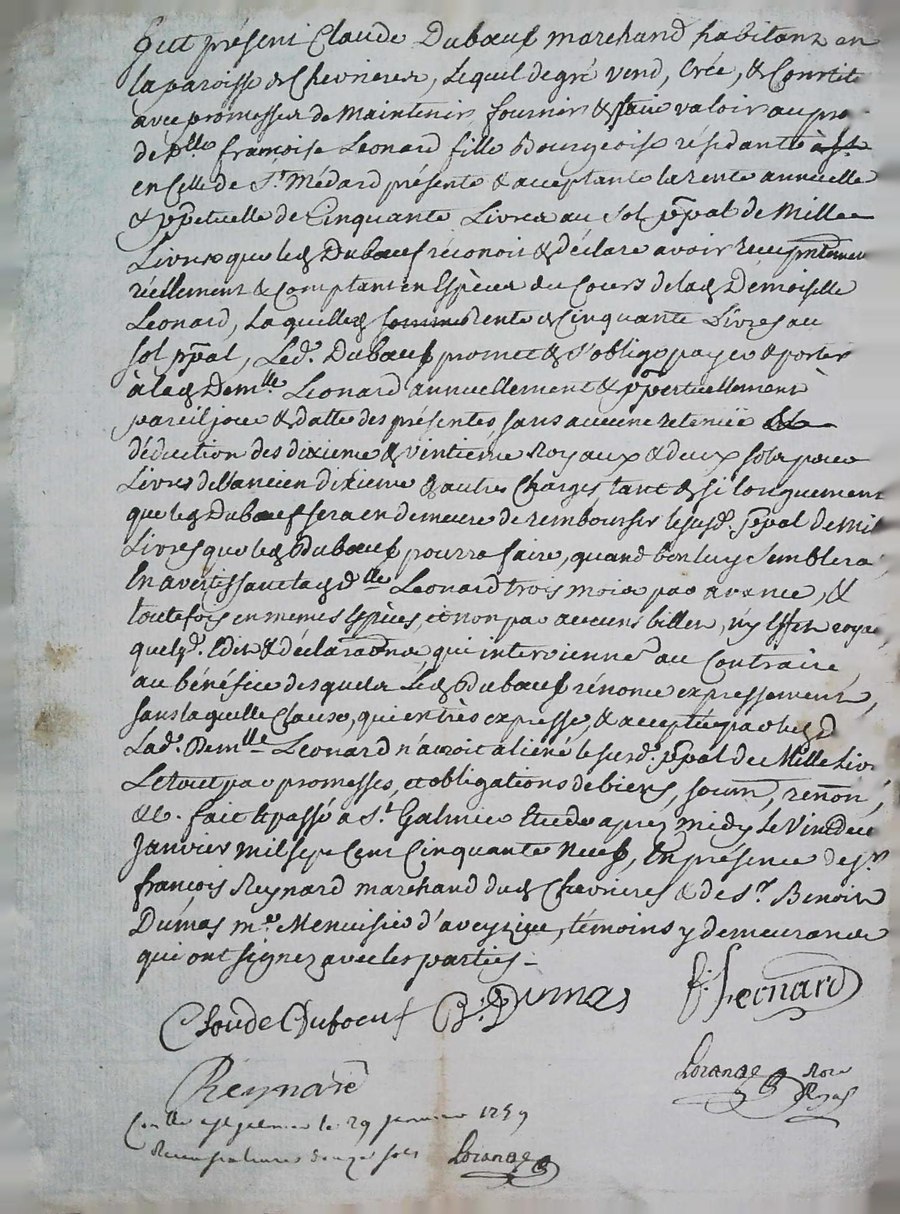 fut présent Claude Duboeuf marchand habitant en
la paroisse de Chevrieres, Lequel de gré vend, Crée, & Constit
avec promesse de Maintenir, fournir & faire valoir au pro
de dlle françoise Leonard fille Bourgeoise résidante
en Celle de St. Médard présente & acceptante la rente annuelle
& ppetuelle de Cinquante Livres au sol ppal de Mille
Livres que led Duboeuf réconoit & déclare avoir recu
réellement & Comptant en Espèces du Cours de lad Demoiselle
Leonard, Laquelle somme rente de Cinquante Livres au
sol ppal, Led. Duboeuf promet & s'oblige payer & porter
à lad Demlle Leonard annuellement & ppertuellement à
pareil jour & datte des présentes, sans aucune retenüe
déduction des dixieme & vintieme Royaux & deux sols pour
Livres de l'ancien dixieme & autres Charges tant & si longuement
que led Duboeuf sera en demeure de rembourser le susd. ppal de mil
Livres que led Duboeuf pourra faire, quand bon luy Semblera,
En avertissant lad dlle Leonard trois mois par avance, &
toutefois en mêmes Espèces, et non par aucuns billets, n'y Effets roya
quelq. Edits & déclara͠ons, qui intervienne au Contraire
au bénéfice desquels Led Duboeuf rénonce expressement,
sans laquelle Clause, qui est très expresse, & acceptée par
Lad. Demlle Leonard n'auroit aliéné le susd. ppal de Mille Liv.
Le tout par promesses, et obligations de biens, soum, renon,
&c. fait & passé à St. Galmier Etude apres midy Le
Janvier mil sept Cent Cinquante Neuf, En présence de sr
françois Reynard marchand dud Chevrieres & de sr. Benoit
Dumas me. Menuisier d'aveyzieu, témoins y demeurance
qui ont signez avec les parties -
Cloude Duboeuf B: Dumas f: Leonard
Reynard
Lorange Nore Royal
Conlle a st galmier le 29 janvier 1759
Recu douze sols Lorange